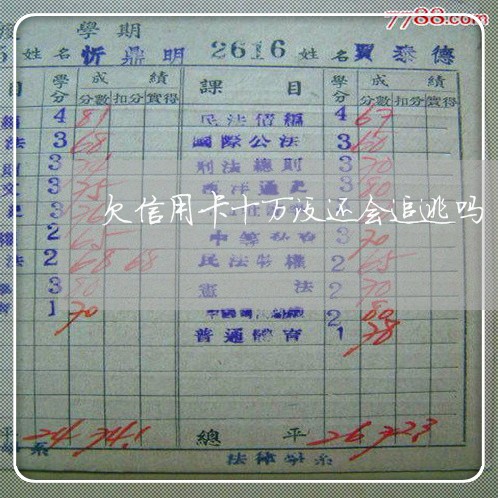 7788.com
學期
姓名 忻鼎明 2616 姓名 賈泰德
目 學分 成績 課目 學分 成績
分數 扣分 實得 分數 扣分 實得
4 81 民法債編 4 67
法 3 68 國際公法 3 60
3 刑法總則 3 70
3 75 西洋通史 3 80
欠信用卡十万没还会追逃吗
2 65 3 70
法 2 68 68 民法物權 2 65
3 80 憲法 2 70
1 70 2 80
普通體育 1 78
平 24 74.1 總平 26 72.3
系 法律學系